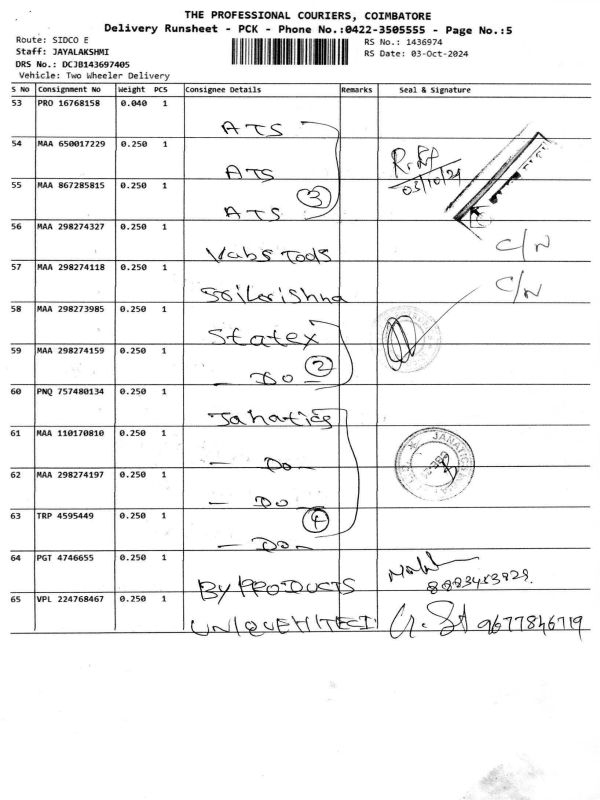 THE PROFESSIONAL COURIERS, COIMBATORE
Delivery Runsheet - PCK - Phone No.:0422-3505555 - Page No.:5
Route: SIDCO E
RS No.: 1436974
Staff: JAYALAKSHMI
RS Date: 03-Oct-2024
DRS No.: DCJB143697405
Vehicle: Two Wheeler Delivery
S No Consignment No Weight PCS Consignee Details Remarks Seal & Signature
53 PRO 16768158 0.040 1 ATS
54 MAA 650017229 0.250 1 ATS
03/10/24
55 MAA 867285815 0.250 1 ATS 3
56 MAA 298274327 0.250 1 Vabs Tools C/N
57 MAA 298274118 0.250 1 Srikrishna C/N
58 MAA 298273985 0.250 1 Statex
59 MAA 298274159 0.250 1 - Do - 2
60 PNQ 757480134 0.250 1 Janatics
61 MAA 110170810 0.250 1 - Do - JANATICS
62 MAA 298274197 0.250 1 - Do -
63 TRP 4595449 0.250 1 - Do - 4
64 PGT 4746655 0.250 1 BY PRODUCTS
65 VPL 224768467 0.250 1 UNIQUE HITECH 9677846719